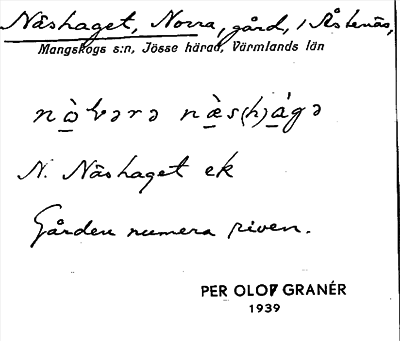 Näshaget, Norra, gård, i Åstenäs,
Mangskogs s:n, Jösse härad, Värmlands län
nò̱rərə næ̀s(h)á̱gə
N. Näshaget ek
Gården numera riven.
PER OLOF GRANÉR
1939